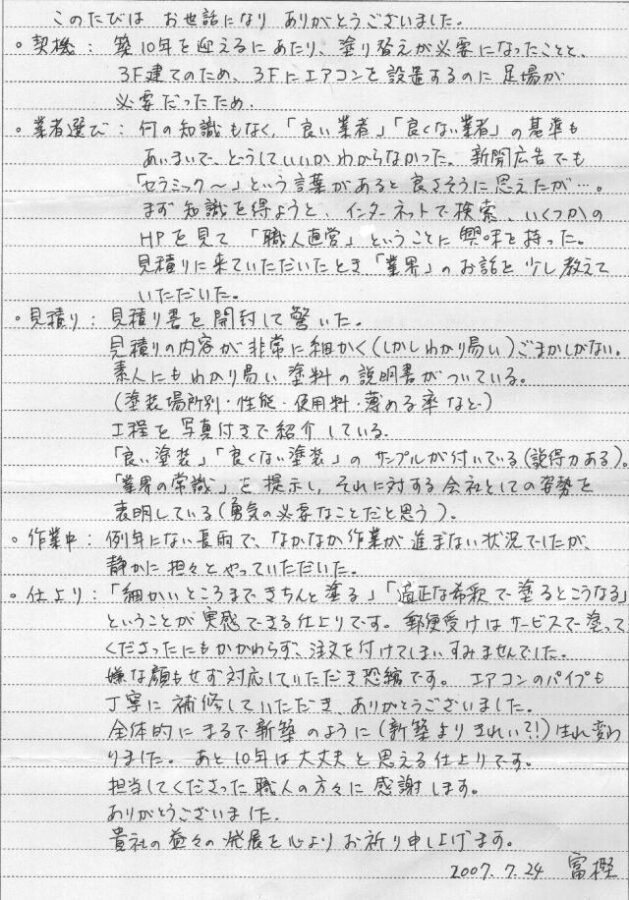 このたびは お世話になり ありがとうございました。
。契機: 築10年を迎えるにあたり、塗り替えが必要になったことと、
3F建てのため、3Fにエアコンを設置するのに足場が
必要だったため.
。業者選び: 何の知識もなく、「良い業者」「良くない業者」の基準も
あいまいで、どうしていいかわからなかった。新聞広告でも
「セラミック〜」という言葉があると良さそうに思えたが…。
まず知識を得ようと、インターネットで検索、いくつかの
HPを見て「職人直営」ということに興味を持った。
見積りに来ていただいたとき「業界」のお話を少し教えて
いただいた。
。見積り: 見積り書を開封して驚いた。
見積りの内容が非常に細かく(しかしわかり易い)ごまかしがない。
素人にもわかり易い塗料の説明書がついている。
(塗装場所別・性能・使用料・薄める率など)
工程を写真付きで紹介している.
「良い塗装」「良くない塗装」のサンプルが付いている(説得力ある)。
「業界の常識」を提示し、それに対する会社としての姿勢を
表明している(勇気の必要なことだと思う)。
。作業中: 例年にない長雨で、なかなか作業が進まない状況でしたが、
静かに担々とやっていただいた。
。仕上り: 「細かいところまできちんと塗る」「適正な希釈で塗るとこうなる」
ということが実感できる仕上りです。郵便受けはサービスで塗って
くださったにもかかわらず、注文を付けてしまいすみませんでした。
嫌な顔もせず対応していただき恐縮です。エアコンのパイプも
丁寧に補修していただき、ありがとうございました。
全体的にまるで新築のように(新築よりきれい?!)生れ変わ
りました。あと10年は大丈夫と思える仕上りです。
担当してくださった職人の方々に感謝します。
ありがとうございました.
貴社の益々の発展を心よりお祈り申し上げます。
2007.7.24 富樫